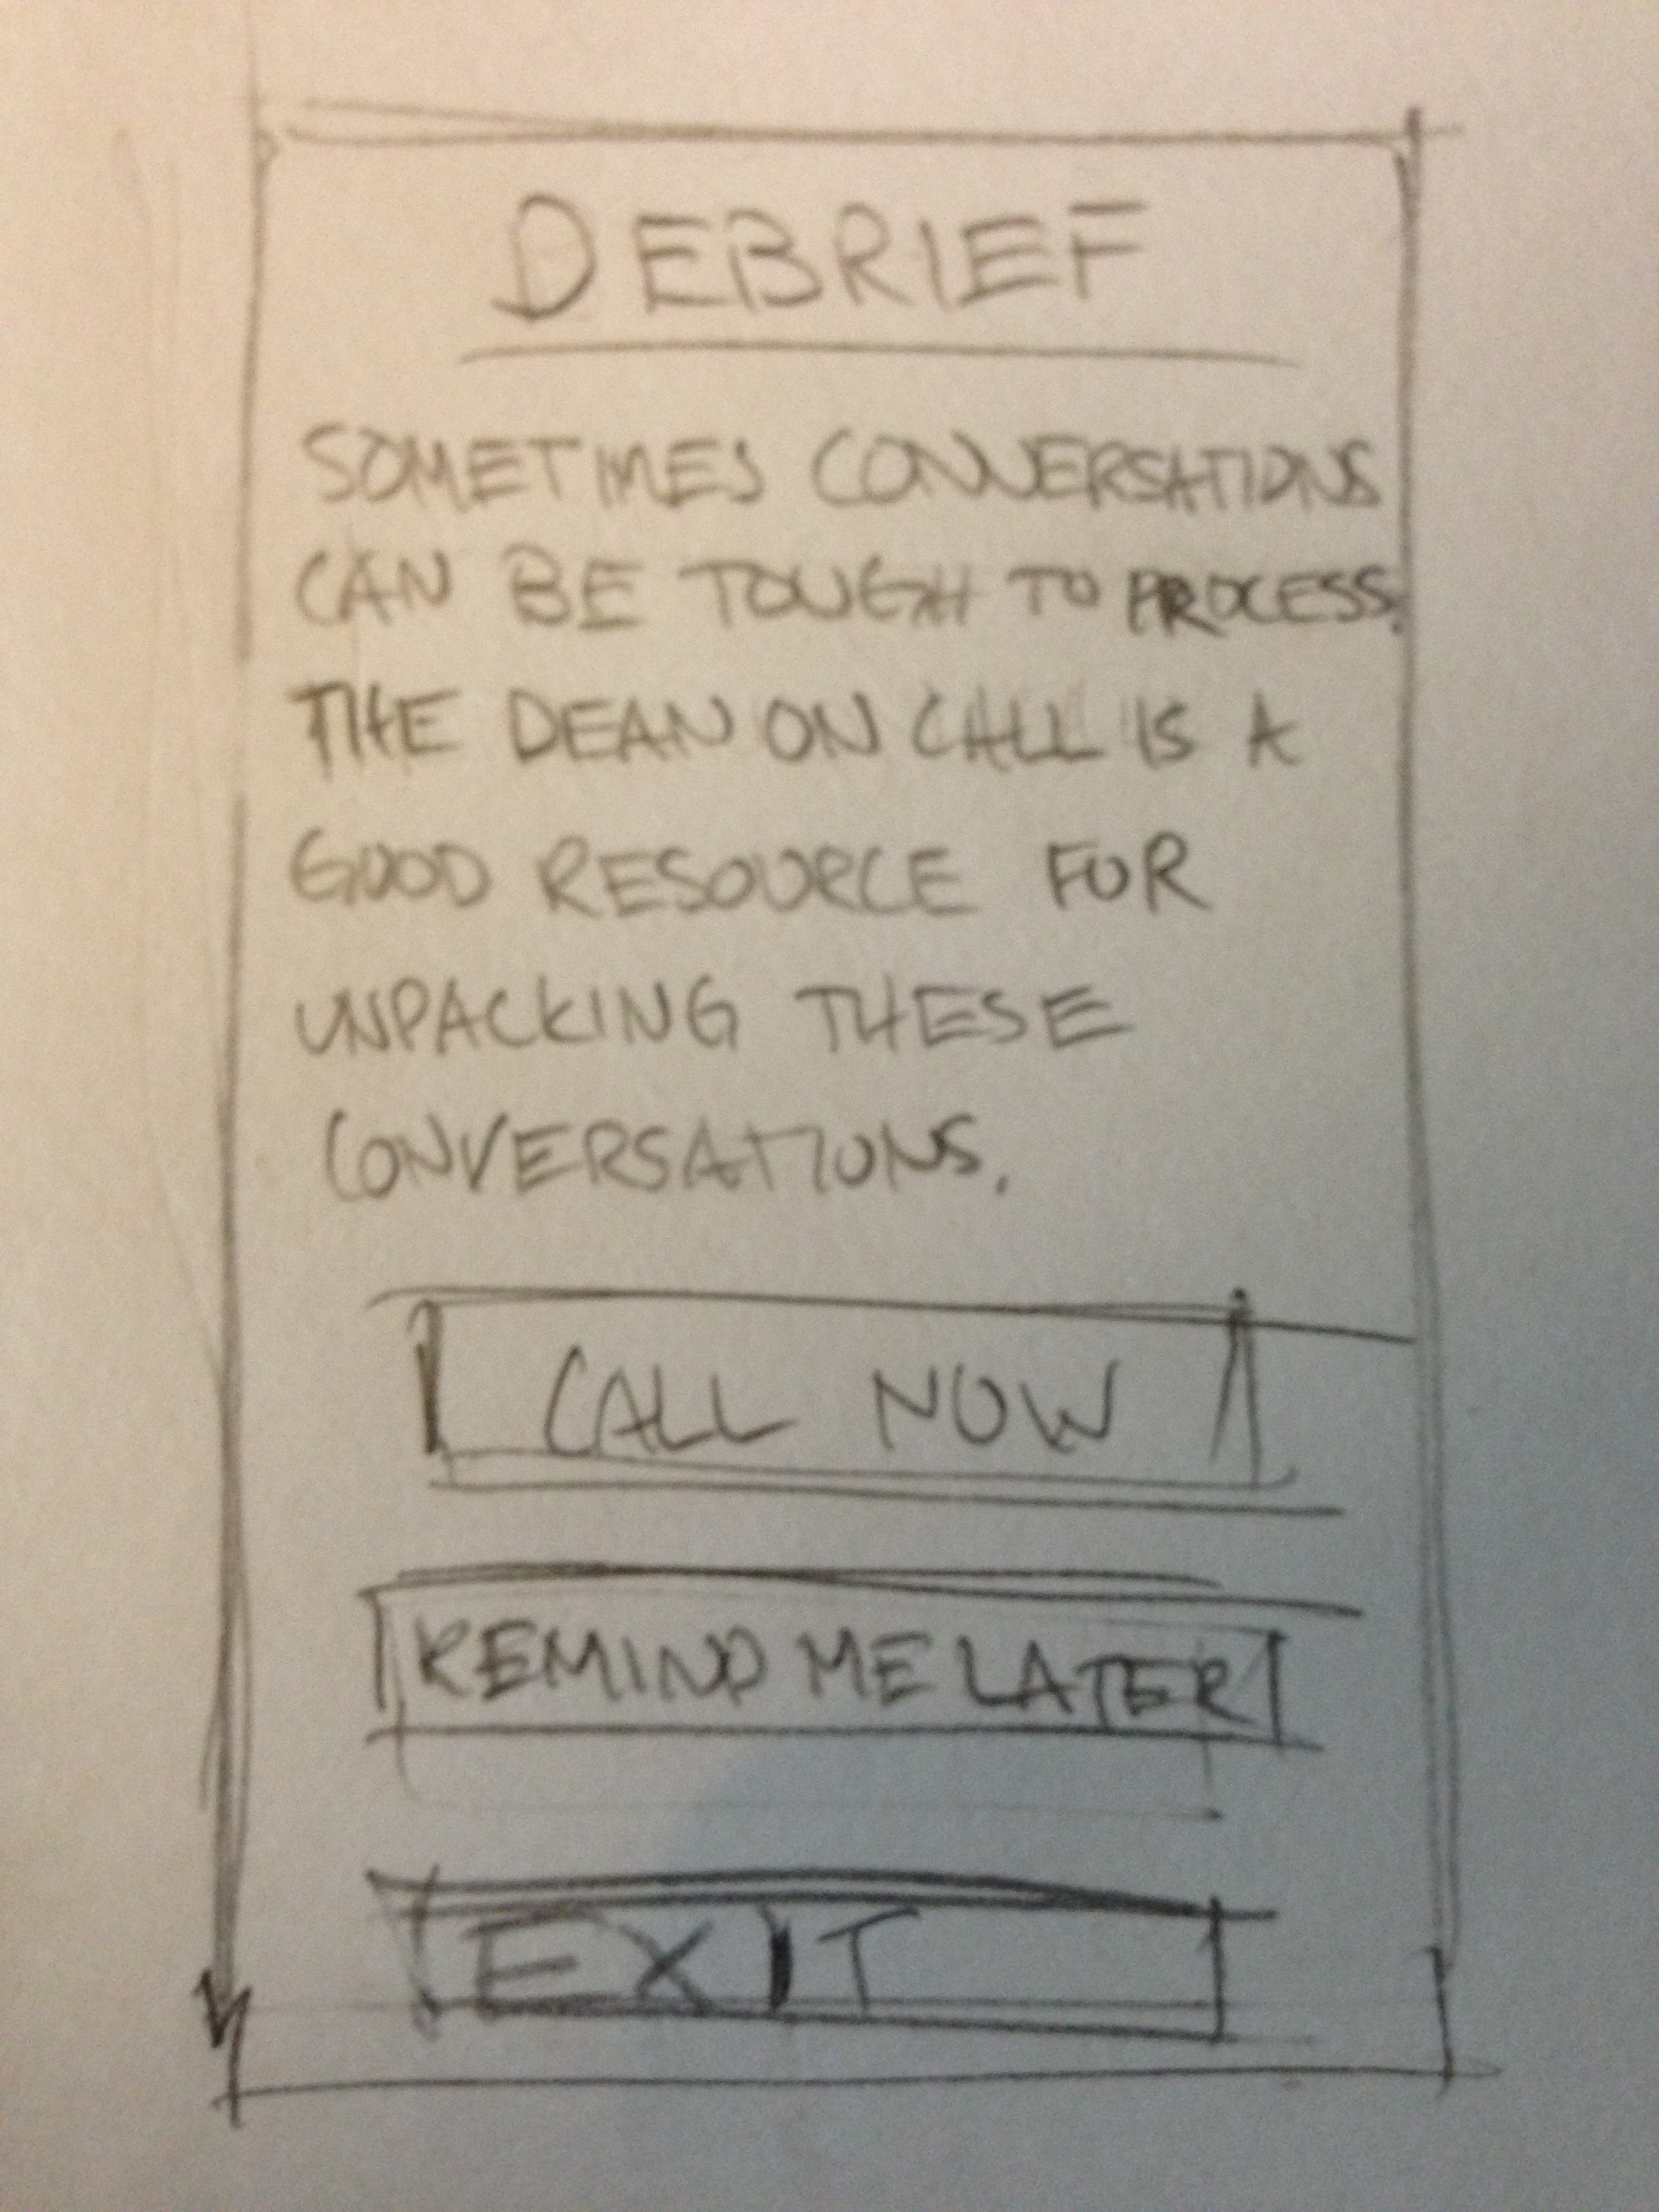 DEBRIEF
SOMETIMES CONVERSATIONS
CAN BE TOUGH TO PROCESS.
THE DEAN ON CALL IS A
GOOD RESOURCE FOR
UNPACKING THESE
CONVERSATIONS.
CALL NOW
REMIND ME LATER
EXIT